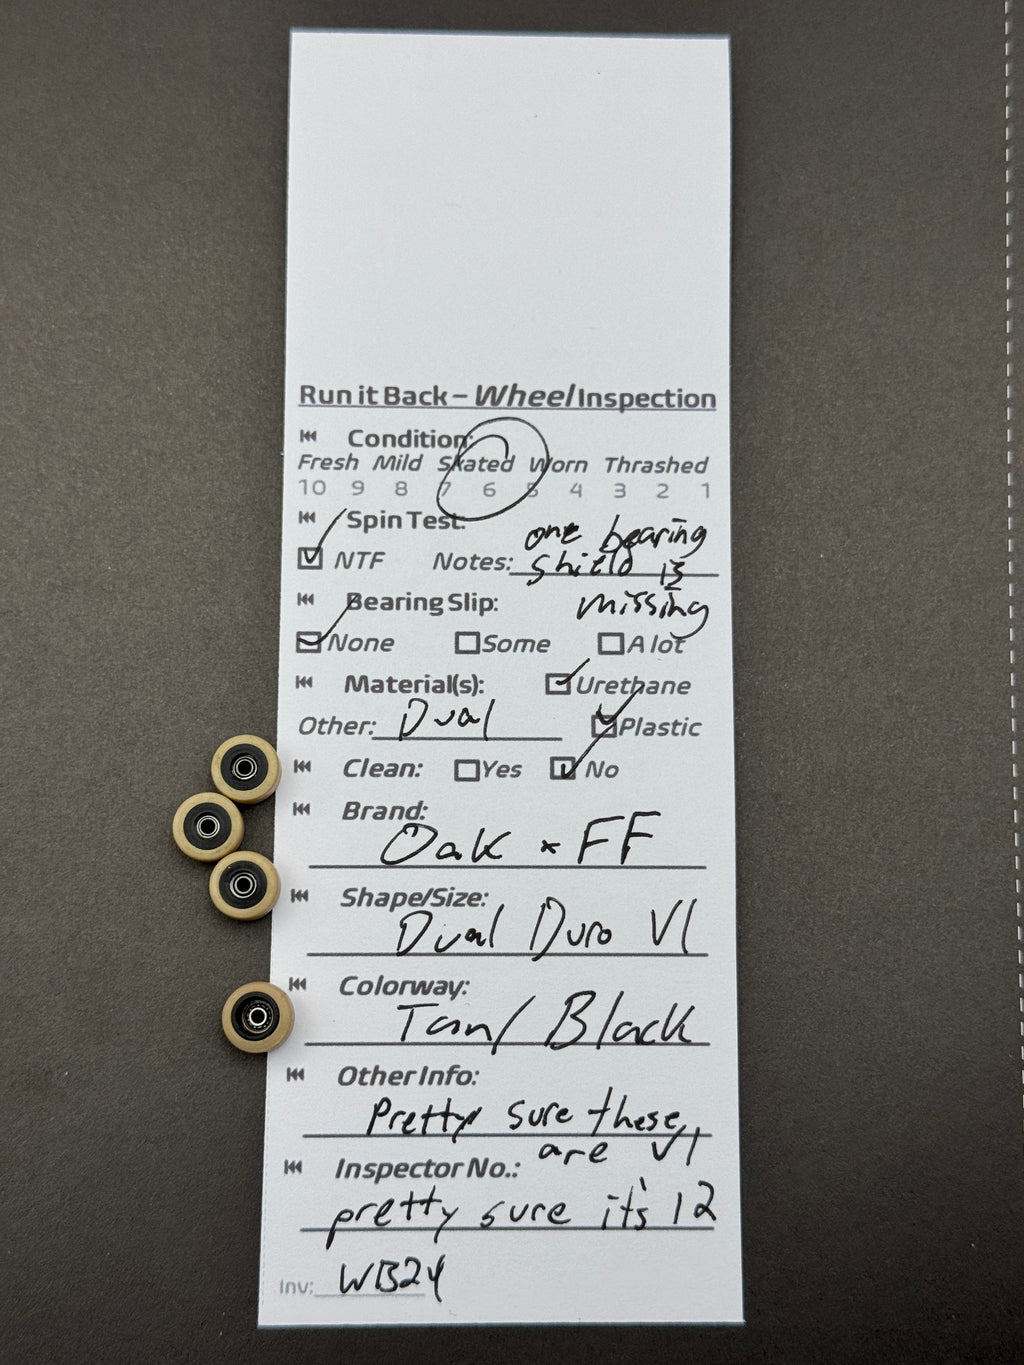 Run it Back – Wheel Inspection
Condition:
Fresh Mild Skated Worn Thrashed
10 9 8 7 6 5 4 3 2 1
Spin Test:
NTF Notes: one bearing
shield is
missing
Bearing Slip:
None Some A lot
Material(s): Urethane
Other: Dual Plastic
Clean: Yes No
Brand:
Oak x FF
Shape/Size:
Dual Duro V1
Colorway:
Tan/Black
Other Info:
Pretty sure these
are V1
Inspector No.:
pretty sure it's 12
Inv: WB24